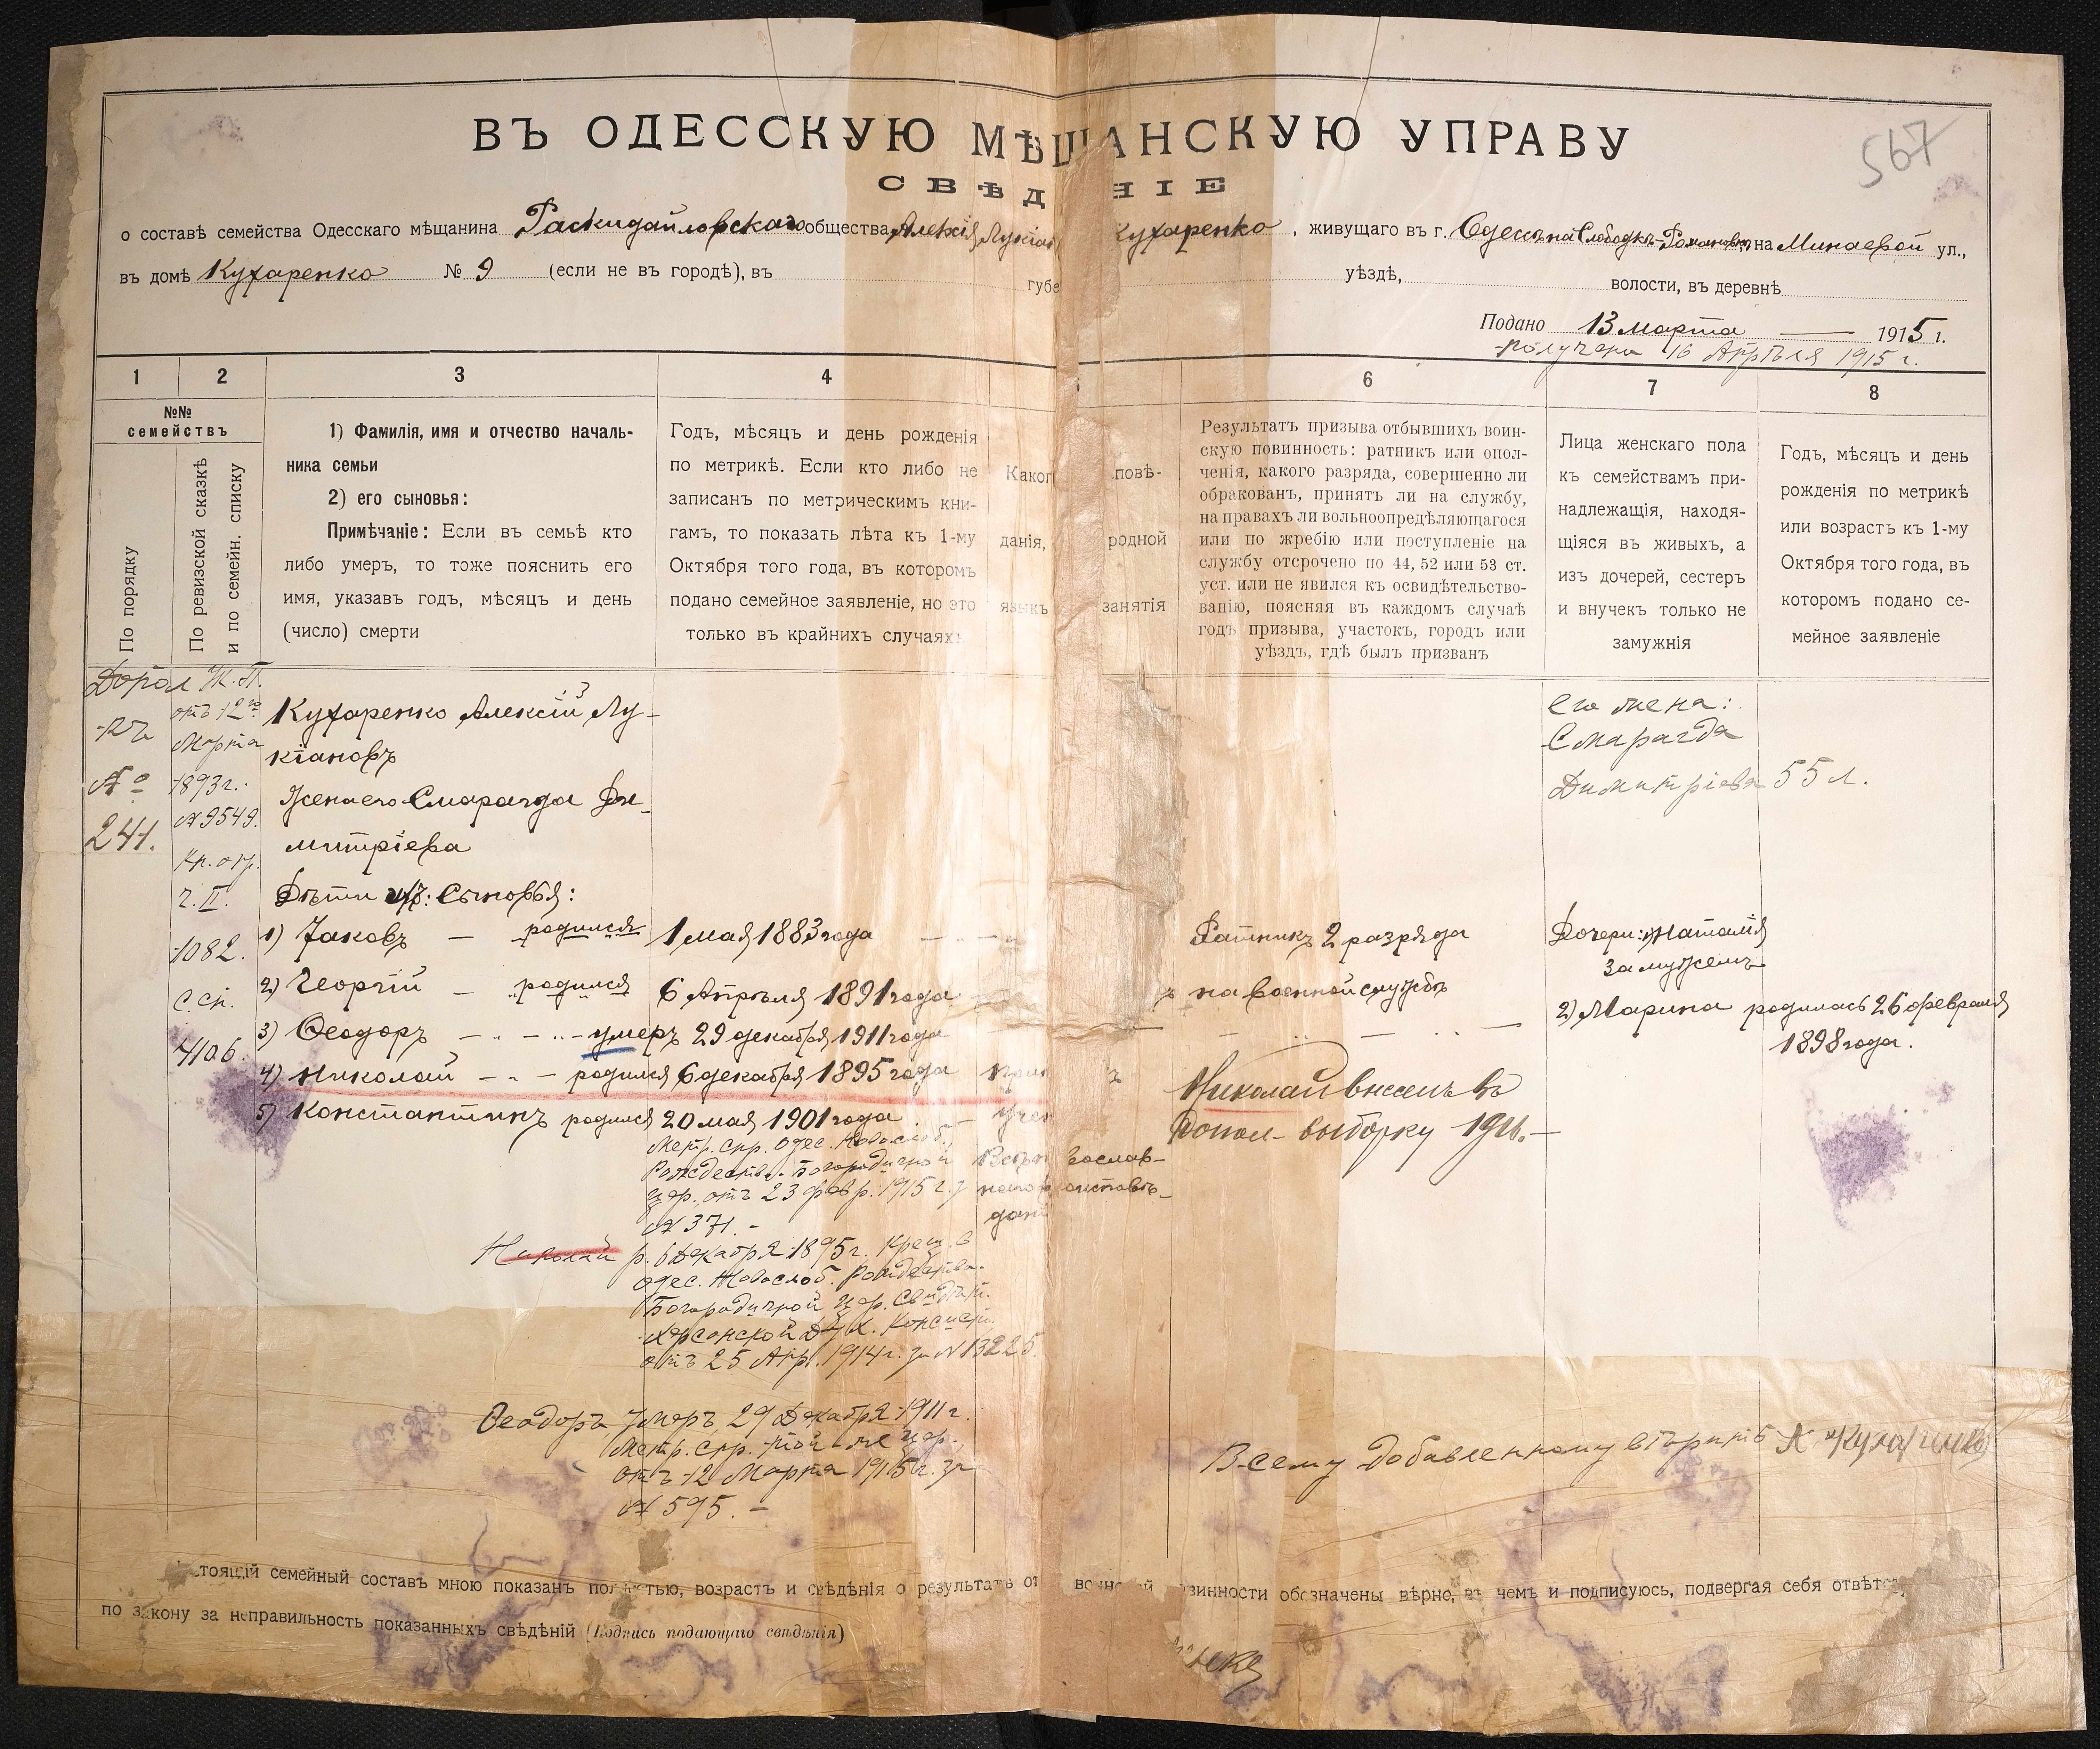 ВЪ ОДЕССКУЮ МѢЩАНСКУЮ УПРАВУ
567
СВѢД НІЕ
о составѣ семейства Одесскаго мѣщанина Раскидайловскаго общества Алексѣя Лукіан Кухаренко, живущаго въ г. Одессѣ на Слободкѣ-Романовкѣ, на Минаевой ул.,
въ домѣ Кухаренко № 9 (если не въ городѣ), въ губе уѣздѣ, волости, въ деревнѣ
Подано 13 марта 1915 г.
получено 16 Апрѣля 1915 г.
1 2 3 4 6 7 8
№№ семействъ
По порядку
По ревизской сказкѣ и по семейн. списку
1) Фамилія, имя и отчество началь-
ника семьи
2) его сыновья:
Примѣчаніе: Если въ семьѣ кто
либо умеръ, то тоже пояснить его
имя, указавъ годъ, мѣсяцъ и день
(число) смерти
Годъ, мѣсяцъ и день рожденія
по метрикѣ. Если кто либо не
записанъ по метрическимъ кни-
гамъ, то показать лѣта къ 1-му
Октября того года, въ которомъ
подано семейное заявленіе, но это
только въ крайнихъ случаяхъ
Каког повѣ-
данія, родной
языкъ занятія
Результатъ призыва отбывшихъ воин-
скую повинность: ратникъ или опол-
ченія, какого разряда, совершенно ли
обракованъ, принятъ ли на службу,
на правахъ ли вольноопредѣляющагося
или по жребію или поступленіе на
службу отсрочено по 44, 52 или 53 ст.
уст. или не явился къ освидѣтельство-
ванію, поясняя въ каждомъ случаѣ
годъ призыва, участокъ, городъ или
уѣздъ, гдѣ былъ призванъ
Лица женскаго пола
къ семействамъ при-
надлежащія, находя-
щіяся въ живыхъ, а
изъ дочерей, сестеръ
и внучекъ только не
замужнія
Годъ, мѣсяцъ и день
рожденія по метрикѣ
или возрастъ къ 1-му
Октября того года, въ
которомъ подано се-
мейное заявленіе
№
241.
отъ 12го
Марта
1893 г.
№ 9549.
ч. II.
1082.
с. сп.
4106.
Кухаренко Алексій Лу-
кіановъ
Жена его Смарагда Ди-
митріева
Дѣти ихъ: Сыновья:
1) Іаковъ — родился 1 мая 1883 года
2) Георгій — родился 6 Апрѣля 1891 года
3) Ѳеодоръ — умеръ 29 декабря 1911 года
4) Николай — родился 6 декабря 1895 года
5) Константинъ родился 20 мая 1901 года
Метр. спр. Одес. Новослоб.
Рождество-Богородичной
цер. отъ 23 февр. 1915 г. за
№ 371.-
Николай р. 6 Декабря 1895 г. Крещ. в
Одес. Новослоб. Рождество-
Богородичной цер. Свидѣт.
Херсонской Дух. Консист.
отъ 25 Апр. 1914 г. за № 13225.
Ѳеодоръ умеръ 29 Декабря 1911 г.
Метр. спр. той-же цер.
отъ 12 Марта 1915 г. за
№ 595.-
Ратникъ 2 разряда
на военной службѣ
Николай внесенъ въ
допол. выборку 1916.-
его жена:
Смарагда
Димитріева 55 л.
Дочери: Наталія
замужемъ
2) Марина родилась 26 февраля
1898 года.
Всему добавленному вѣрить А Кухаренко
стоящій семейный составъ мною показанъ полностью, возрастъ и свѣдѣнія о результатѣ от воинской повинности обозначены вѣрно, въ чемъ и подписуюсь, подвергая себя отвѣтс
по закону за неправильность показанныхъ свѣдѣній (Подпись подающаго свѣдѣнія)